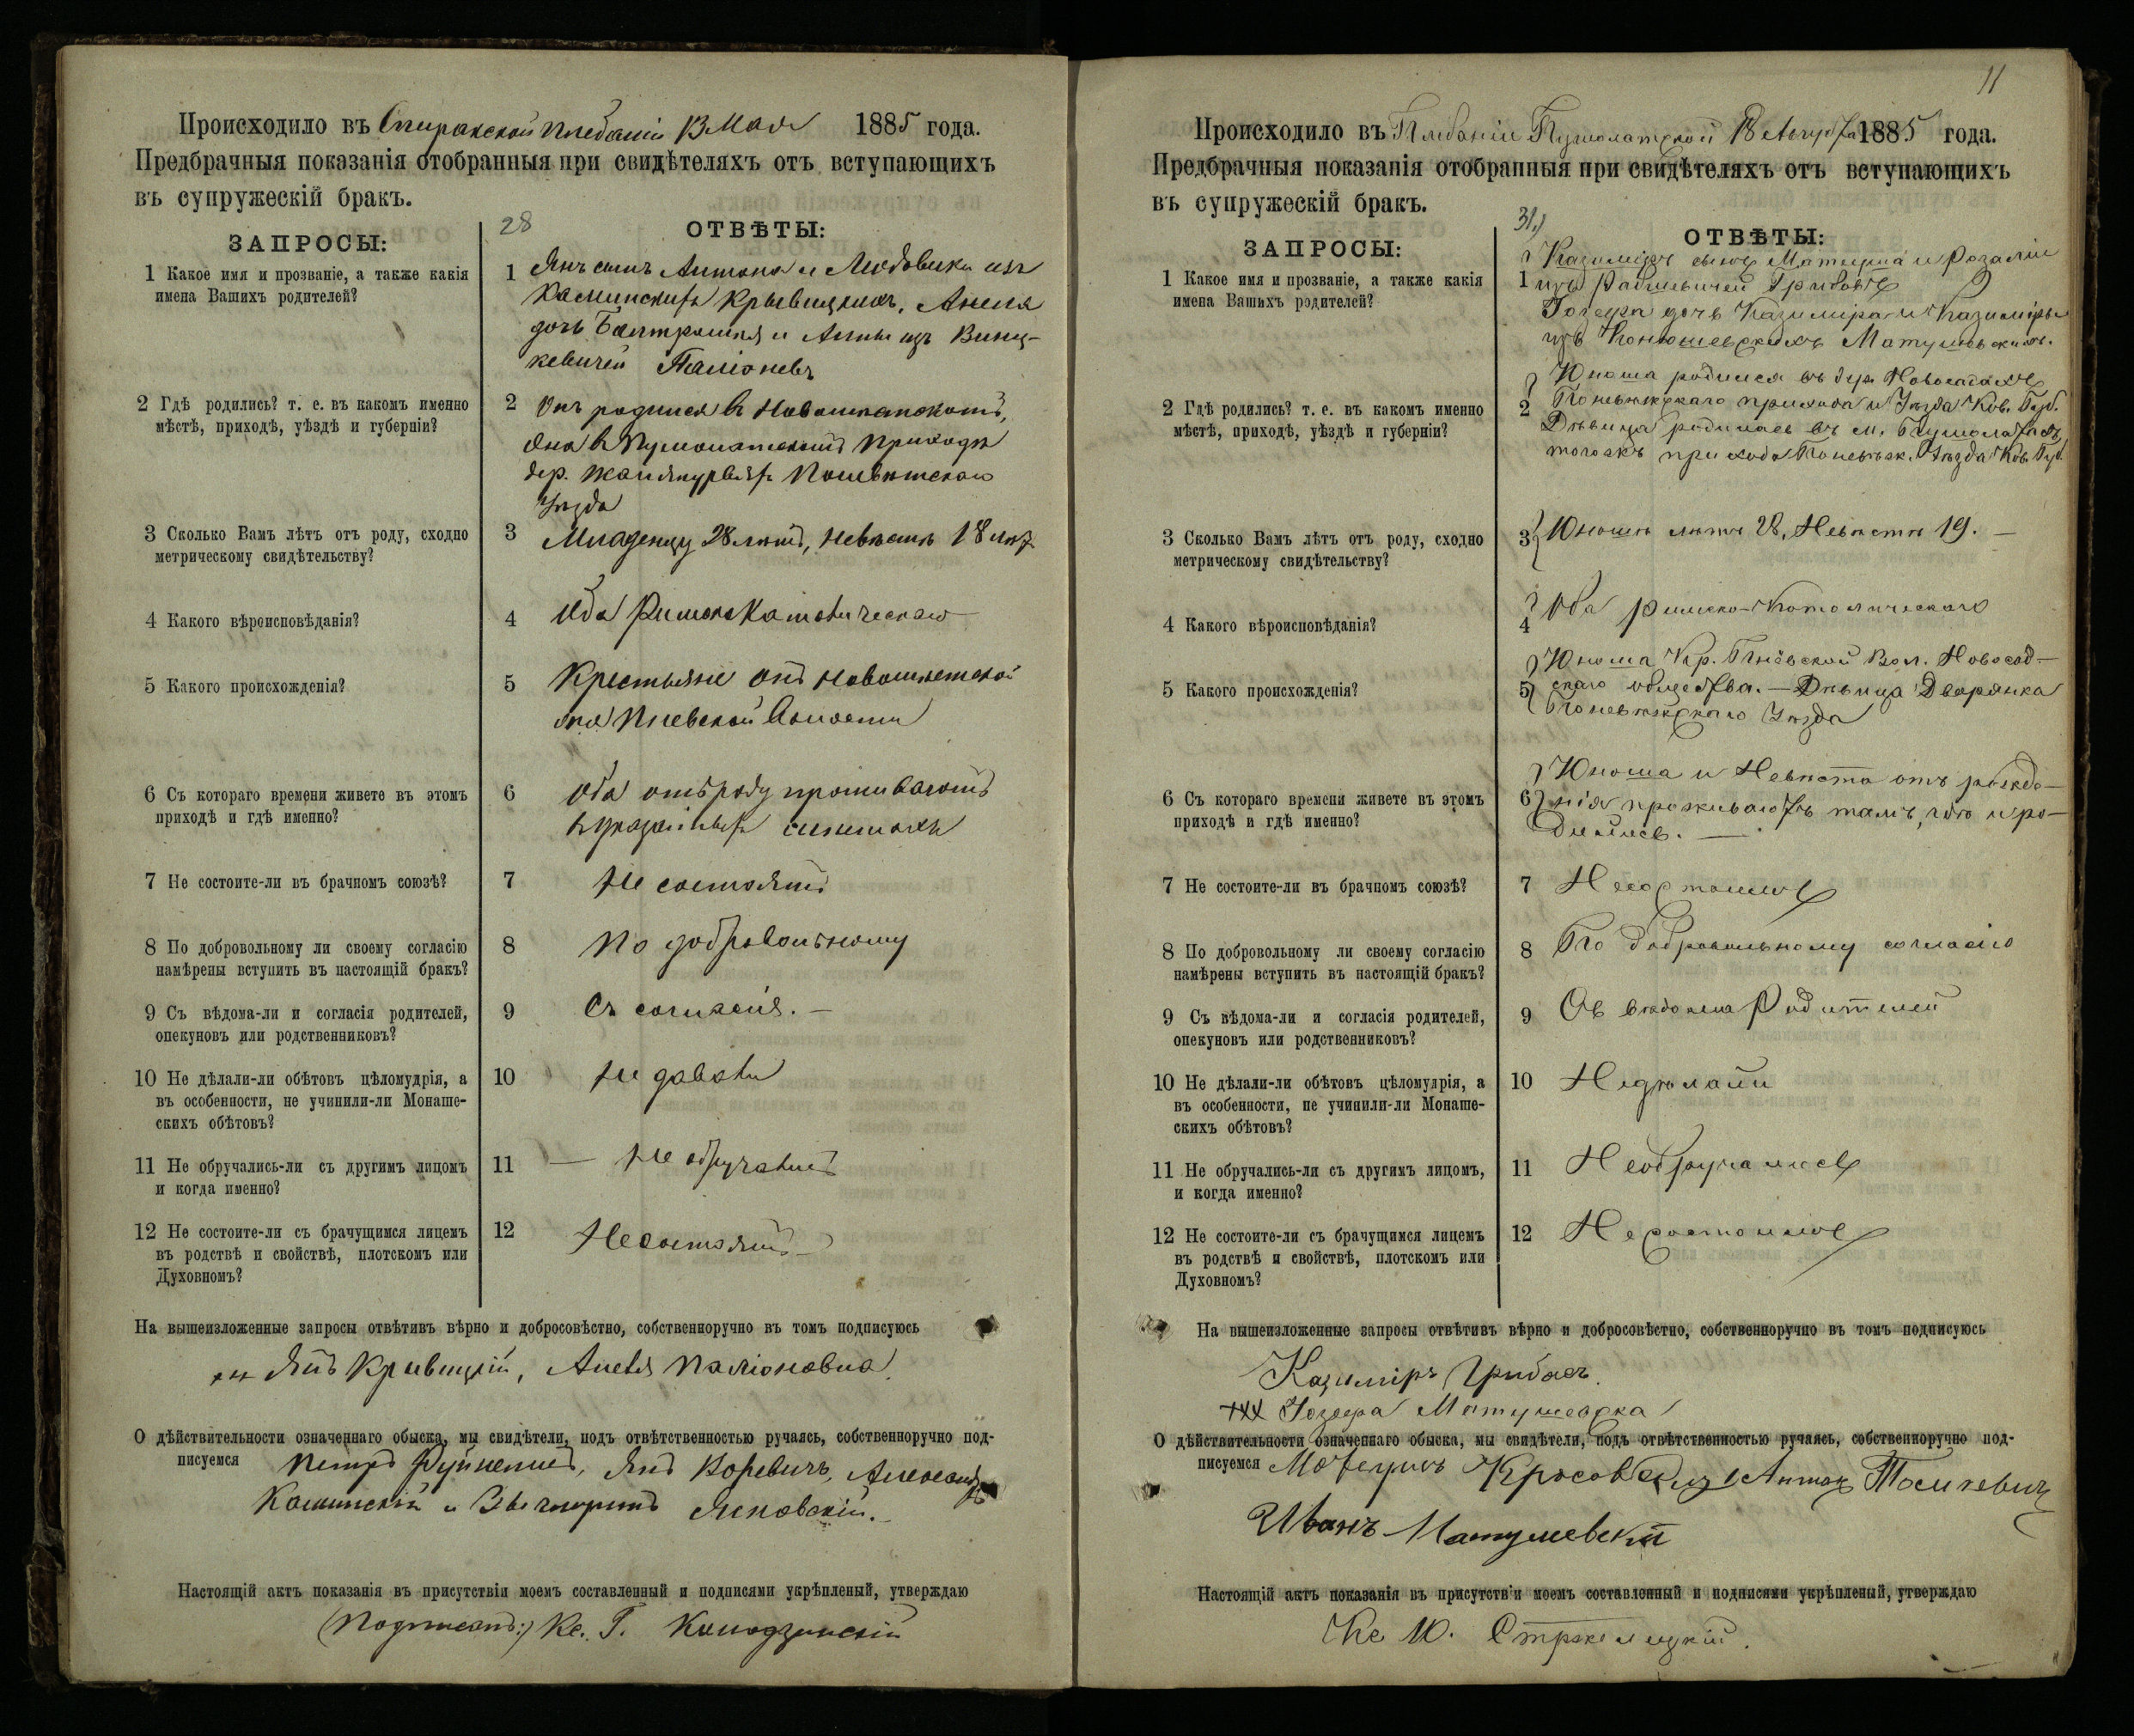 Происходило въ Плебаніи 13 Мая 1885 года.
Предбрачныя показанія отобранныя при свидѣтеляхъ отъ вступающихъ
въ супружескій бракъ.
28
ЗАПРОСЫ:
ОТВѢТЫ:
1 Какое имя и прозваніе, а также какія
имена Вашихъ родителей?
1 Янъ сынъ Антона и Людовики изъ
Каминскихъ Крывицкихъ, Анеля
дочь и Анны изъ Винц-
кевичей
2 Гдѣ родились? т. е. въ какомъ именно
мѣстѣ, приходѣ, уѣздѣ и губерніи?
2 Онъ родился въ
Она въ Пумпянскомъ приходѣ
дер.
Уѣзда
3 Сколько Вамъ лѣтъ отъ роду, сходно
метрическому свидѣтельству?
3 Младенцу 28 лѣтъ, невѣстѣ 18 лѣтъ
4 Какого вѣроисповѣданія?
4 Оба Римско Католическаго
5 Какого происхожденія?
5 Крестьяне онъ
она Пневской Волости
6 Съ котораго времени живете въ этомъ
приходѣ и гдѣ именно?
6 Оба отъ роду проживаютъ
въ указанныхъ
7 Не состоите-ли въ брачномъ союзѣ?
7 Не состоятъ
8 По добровольному ли своему согласію
намѣрены вступить въ настоящій бракъ?
8 По добровольному
9 Съ вѣдома-ли и согласія родителей,
опекуновъ или родственниковъ?
9 Съ согласія. —
10 Не дѣлали-ли обѣтовъ цѣломудрія, а
въ особенности, не учинили-ли Монаше-
скихъ обѣтовъ?
10 Не давали
11 Не обручались-ли съ другимъ лицомъ
и когда именно?
11 — Не обручались
12 Не состоите-ли съ брачущимся лицемъ
въ родствѣ и свойствѣ, плотскомъ или
Духовномъ?
12 Не состоятъ —
На вышеизложенные запросы отвѣтивъ вѣрно и добросовѣстно, собственноручно въ томъ подписуюсь
Янъ Крывицкій, Анеля Паліоновна.
О дѣйствительности означеннаго обыска, мы свидѣтели, подъ отвѣтственностью ручаясь, собственноручно под-
писуемся Петръ Янъ Александръ
Каминскій и Янковскій.
Настоящій актъ показанія въ присутствіи моемъ составленный и подписями укрѣпленый, утверждаю
(Подписалъ:) Кс. Г.
11
Происходило въ Плебаніи 18 Августа 1885 года.
Предбрачныя показанія отобранныя при свидѣтеляхъ отъ вступающихъ
въ супружескій бракъ.
31.)
ЗАПРОСЫ:
ОТВѢТЫ:
1 Какое имя и прозваніе, а также какія
имена Вашихъ родителей?
1 Казиміръ сынъ и Розаліи
изъ
Іозефа дочь Казимира и Казиміры
изъ Матушевскихъ.
2 Гдѣ родились? т. е. въ какомъ именно
мѣстѣ, приходѣ, уѣздѣ и губерніи?
2 Юноша родился въ дер. Новосадахъ
Поневѣжскаго прихода и Уѣзда Ков. Губ.
Дѣвица родилась въ м.
тогожъ прихода Поневѣж. Уѣзда Ков. Губ.
3 Сколько Вамъ лѣтъ отъ роду, сходно
метрическому свидѣтельству?
3 Юношѣ лѣтъ 28, Невѣстѣ 19. —
4 Какого вѣроисповѣданія?
4 Оба римско-католическаго
5 Какого происхожденія?
5 Юноша Кр. Пнёвской Вол. Новосад-
скаго общества. — Дѣвица Дворянка
Поневѣжскаго Уѣзда
6 Съ котораго времени живете въ этомъ
приходѣ и гдѣ именно?
6 Юноша и Невѣста отъ рожде-
нія проживаютъ тамъ, гдѣ и ро-
дились. —
7 Не состоите-ли въ брачномъ союзѣ?
7 Несостоимъ
8 По добровольному ли своему согласію
намѣрены вступить въ настоящій бракъ?
8 По добровольному согласію
9 Съ вѣдома-ли и согласія родителей,
опекуновъ или родственниковъ?
9 Съ вѣдома Родителей
10 Не дѣлали-ли обѣтовъ цѣломудрія, а
въ особенности, не учинили-ли Монаше-
скихъ обѣтовъ?
10 Недѣлали
11 Не обручались-ли съ другимъ лицомъ,
и когда именно?
11 Необручались
12 Не состоите-ли съ брачущимся лицемъ
въ родствѣ и свойствѣ, плотскомъ или
Духовномъ?
12 Несостоимъ
На вышеизложенные запросы отвѣтивъ вѣрно и добросовѣстно, собственноручно въ томъ подписуюсь
Казиміръ Грибасъ.
xxx Іозефа Матушевска
О дѣйствительности означеннаго обыска, мы свидѣтели, подъ отвѣтственностью ручаясь, собственноручно под-
писуемся Антон
Иванъ Матушевскій
Настоящій актъ показанія въ присутствіи моемъ составленный и подписями укрѣпленый, утверждаю
Кс Ю. Стржелецкій.